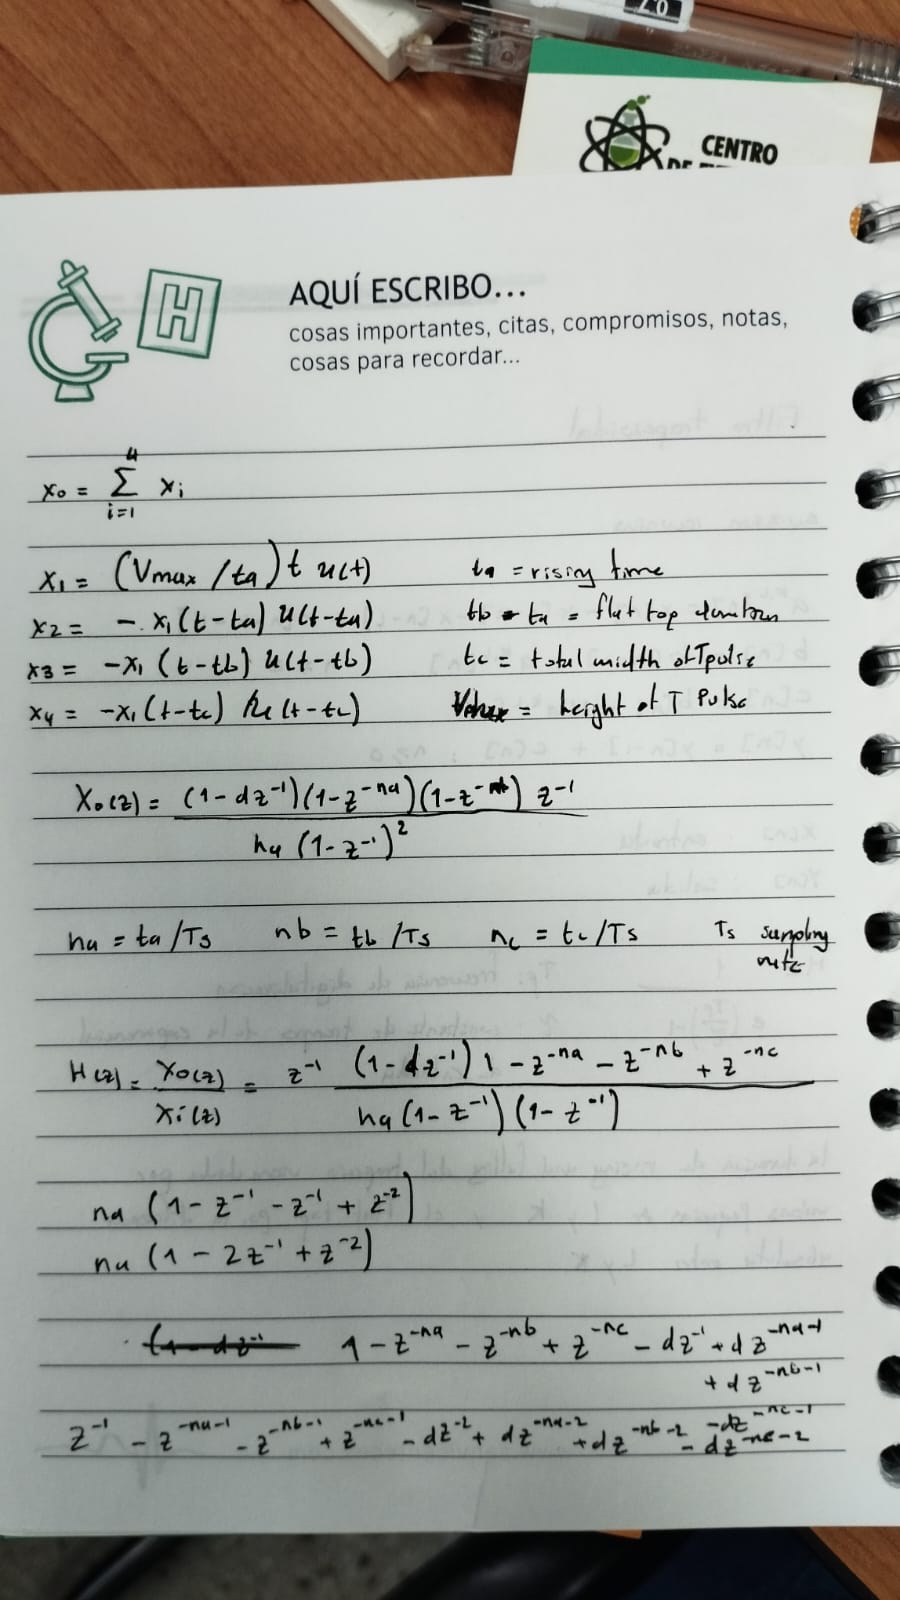 0.7
CENTRO
AQUÍ ESCRIBO...
cosas importantes, citas, compromisos, notas,
cosas para recordar...
x₀ = Σ_{i=1}^{4} xᵢ
x₁ = (Vmax / ta) t u(t)    ta = rising time
x₂ = - x₁(t-ta) u(t-ta)    tb - ta = flat top duration
x₃ = -x₁ (t-tb) u(t-tb)    tc = total width of T pulse
x₄ = -x₁(t-tc) u(t-tc)    Vmax = height of T Pulse
X₀(z) = (1-dz⁻¹)(1-z^{-na})(1-z^{-nb}) z⁻¹
na (1-z⁻¹)²
na = ta/Ts    nb = tb/Ts    nc = tc/Ts    Ts sampling
rate
H(z) = X₀(z)/Xi(z) = z⁻¹ (1-dz⁻¹) 1 - z^{-na} - z^{-nb} + z^{-nc}
na (1-z⁻¹) (1-z⁻¹)
na (1 - z⁻¹ - z⁻¹ + z⁻²)
na (1 - 2z⁻¹ + z⁻²)
1 - z^{-na} - z^{-nb} + z^{-nc} - dz⁻¹ + dz^{-na-1}
+ dz^{-nb-1}
- dz^{-nc-1}
z⁻¹ - z^{-na-1} - z^{-nb-1} + z^{-nc-1} - dz⁻² + dz^{-na-2} + dz^{-nb-2} - dz^{-nc-2}